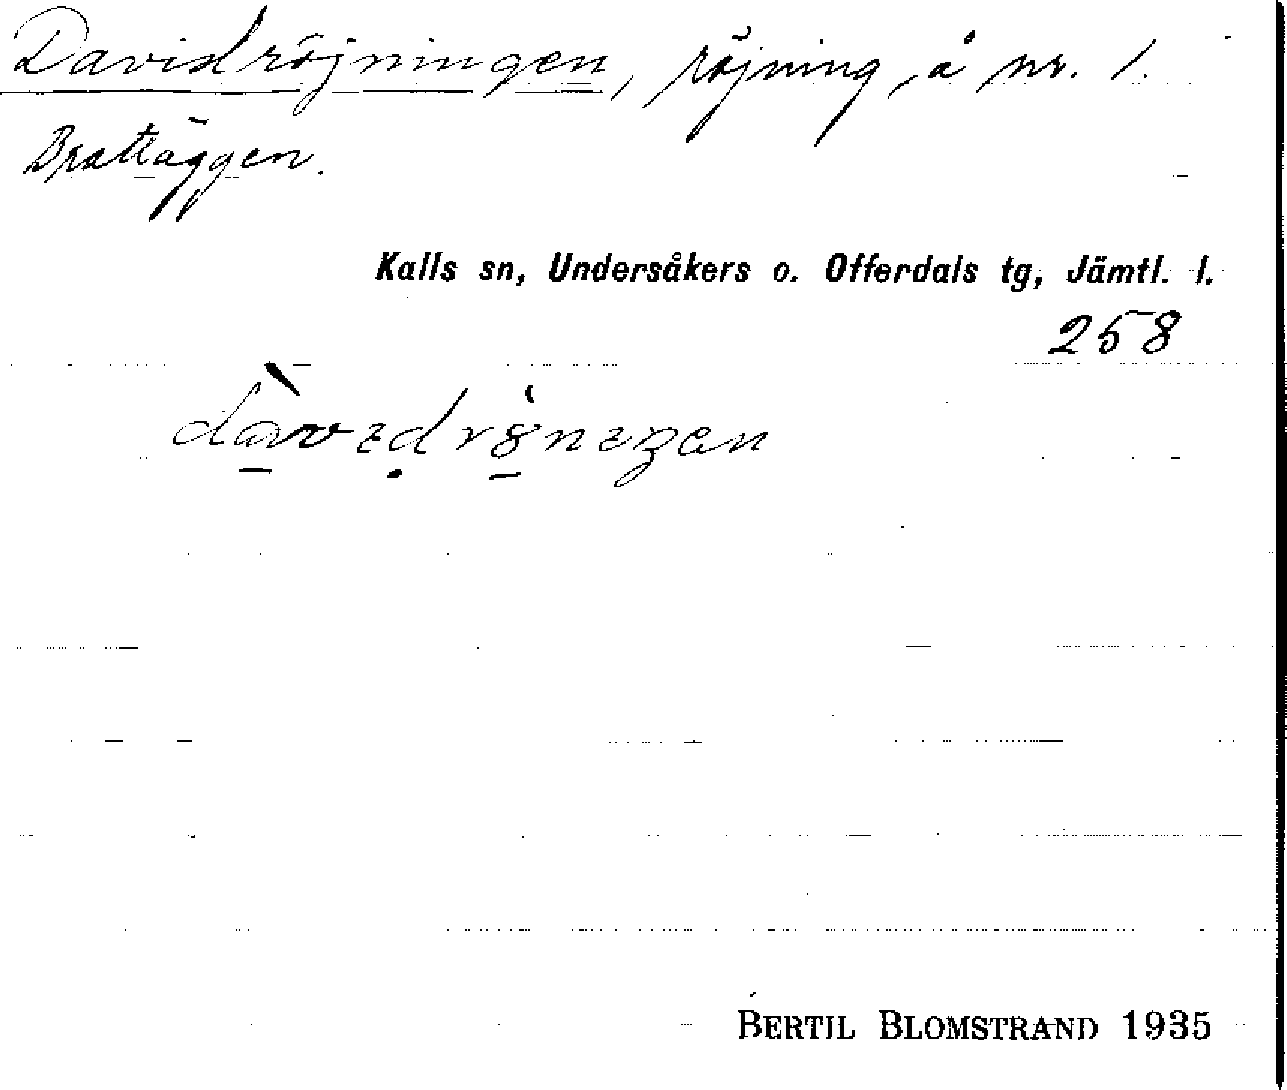 Davidröjningen, röjning å nr. 1.
Brattäggen.
Kalls sn, Undersåkers o. Offerdals tg, Jämtl. l.
258
BERTIL BLOMSTRAND 1935